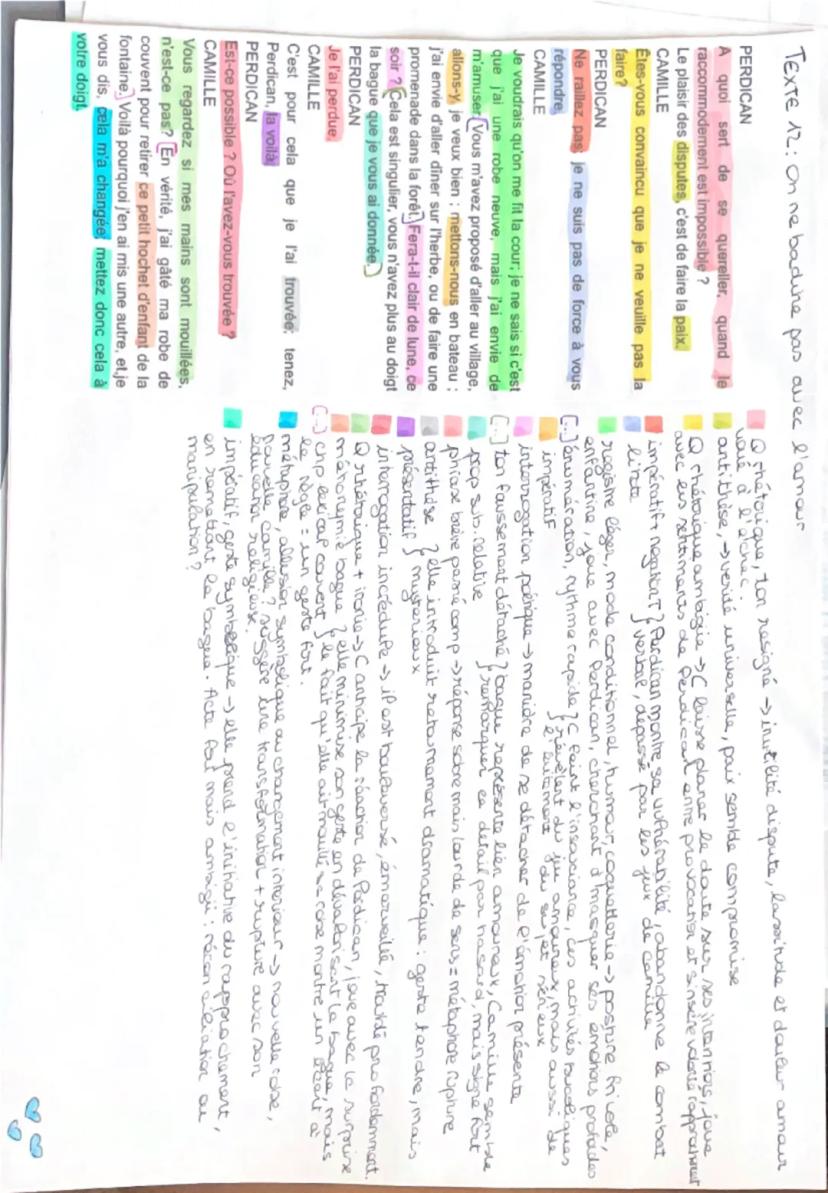 Texte 12 : on ne badine pas avec l'amour
PERDICAN
A quoi sert de se quereller, quand le
raccommodement est impossible ?
Le plaisir des disputes, c'est de faire la paix.
CAMILLE
Êtes-vous convaincu que je ne veuille pas la
faire?
PERDICAN
Ne raillez pas; je ne suis pas de force à vous
répondre.
CAMILLE
Je voudrais qu'on me fît la cour; je ne sais si c'est
que j'ai une robe neuve, mais j'ai envie de
m'amuser. Vous m'avez proposé d'aller au village,
allons-y, je veux bien ; mettons-nous en bateau ;
j'ai envie d'aller dîner sur l'herbe, ou de faire une
promenade dans la forêt. Fera-t-il clair de lune, ce
soir ? Cela est singulier, vous n'avez plus au doigt
la bague que je vous ai donnée.
PERDICAN
Je l'ai perdue.
CAMILLE
C'est pour cela que je l'ai trouvée; tenez,
Perdican, la voilà.
PERDICAN
Est-ce possible ? Où l'avez-vous trouvée ?
CAMILLE
Vous regardez si mes mains sont mouillées,
n'est-ce pas? En vérité, j'ai gâté ma robe de
couvent pour retirer ce petit hochet d'enfant de la
fontaine. Voilà pourquoi j'en ai mis une autre, et,je
vous dis, cela m'a changée; mettez donc cela à
votre doigt.
Q rhétorique, ton résigné → inutilité dispute, lassitude et douleur amour
voué à l'échec.
antithèse, → vérité universelle, paix semble compromise
Q rhétorique ambigüe → C laisse planer le doute sur ses intentions, joue
avec les sentiments de Perdican entre provocation et sincère volonté rapprochement
impératif + négation } Perdican montre sa vulnérabilité, abandonne le combat
litote } verbal, dépassé par les jeux de Camille
registre léger, mode conditionnel, humour, coquetterie → posture frivole,
enfantine, joue avec Perdican, cherchant à masquer ses émotions profondes
(...) énumération, rythme rapide } C feint l'insouciance, ces activités bucoliques
impératif } révèlent du jeu amoureux, mais aussi de
l'évitement du sujet sérieux
interrogation poétique → manière de se détacher de l'émotion présente
(...) ton faussement détaché } bague représente lien amoureux, Camille semble
prop sub. relative } remarquer ce détail par hasard, mais signe fort
phrase brève passé comp → réponse sobre mais lourde de sens = métaphore rupture
antithèse } elle introduit retournement dramatique : geste tendre, mais
présentatif } mystérieux
interrogation incrédule → il est bouleversé, émerveillé, troublé profondément.
Q rhétorique + ironie → C anticipe la réaction de Perdican, joue avec la surprise
métonymie bague } elle minimise son geste en dévalorisant la bague, mais
(...) chp lexical couvent } le fait qu'elle ait mouillé sa robe montre un à
la règle = un geste fort.
métaphore, allusion symbolique au changement intérieur → nouvelle robe,
nouvelle Camille ? suggère une transformation + rupture avec son
éducation religieuse.
impératif, geste symbolique → elle prend l'initiative du rapprochement,
en remettant la bague. Acte fort mais ambigü : réconciliation ou
manipulation ?